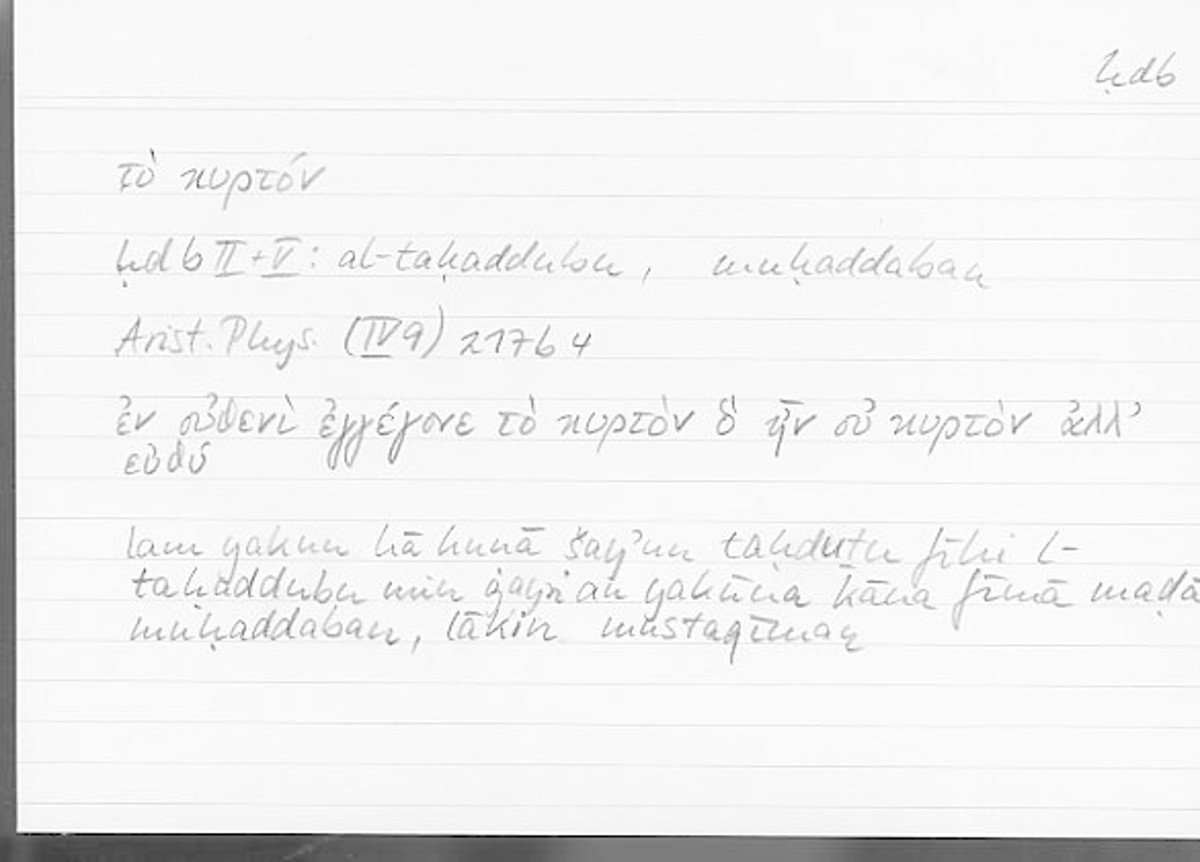 ḥdb
τὸ κυρτόν
ḥdb II + V: al-taḥaddubu, muḥaddaban
Arist. Phys. (IV 9) 217b 4
ἐν οὐθενὶ ἐγγέγονε τὸ κυρτὸν ὃ ἦν οὐ κυρτὸν ἀλλ’
εὐθύ
lam yakun hā hunā šayʾun taḥduṯu fīhi l-
taḥaddubu min ġayri an yakūna kāna fīmā maḍā
muḥaddaban, lākin mustaqīman